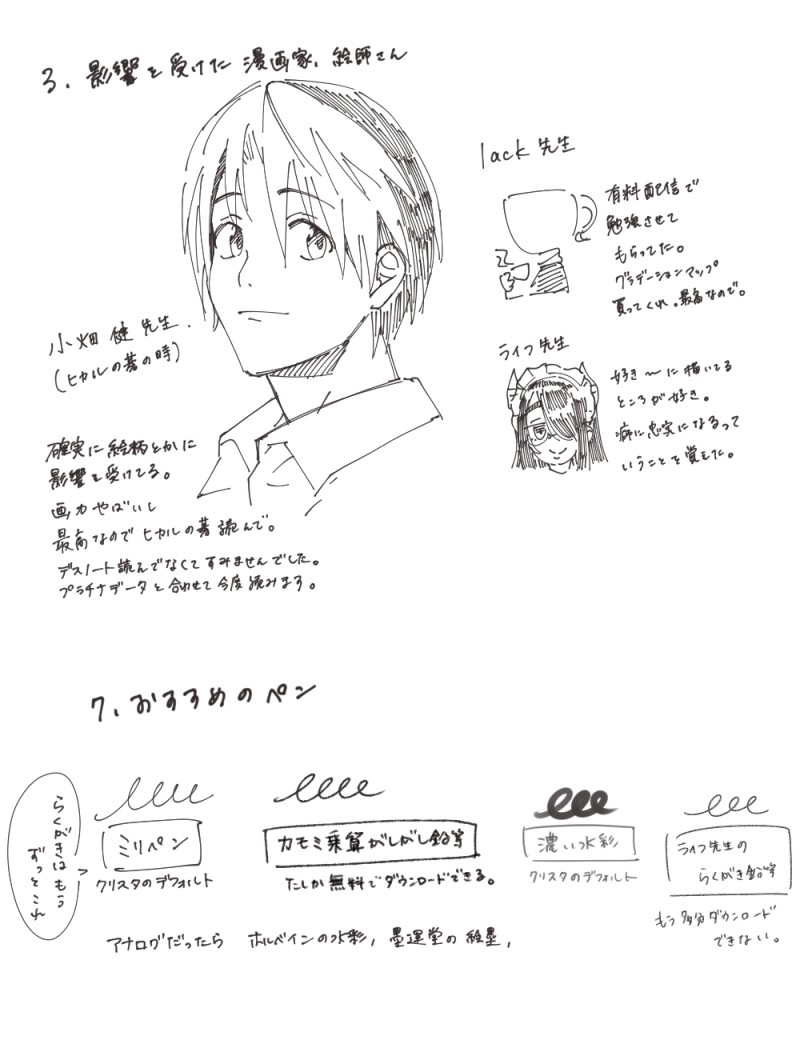 3. 影響を受けた 漫画家、絵師さん
小畑 健 先生.
(ヒカルの碁の時)
確実に絵柄とかに
影響を受けてる。
画力やばいし
最高なので ヒカルの碁 読んで。
デスノート読んでなくてすみませんでした。
プラチナデータと合わせて今度読みます。
lack 先生
有料配信で
勉強させて
もらってた。
グラデーションマップ
買ってくれ。最高なので。
ライフ先生
好き〜に描いてる
ところが好き。
癖に忠実になるって
いうことを覚えた。
7、おすすめのペン
らくがきはもう
ずっとこれ
ミリペン
クリスタのデフォルト
カモミ乗算がしがし鉛筆
たしか無料でダウンロードできる。
濃い水彩
クリスタのデフォルト
ライフ先生の
らくがき鉛筆
もう多分ダウンロード
できない。
アナログだったら ホルベインの水彩, 墨運堂の 絵墨,